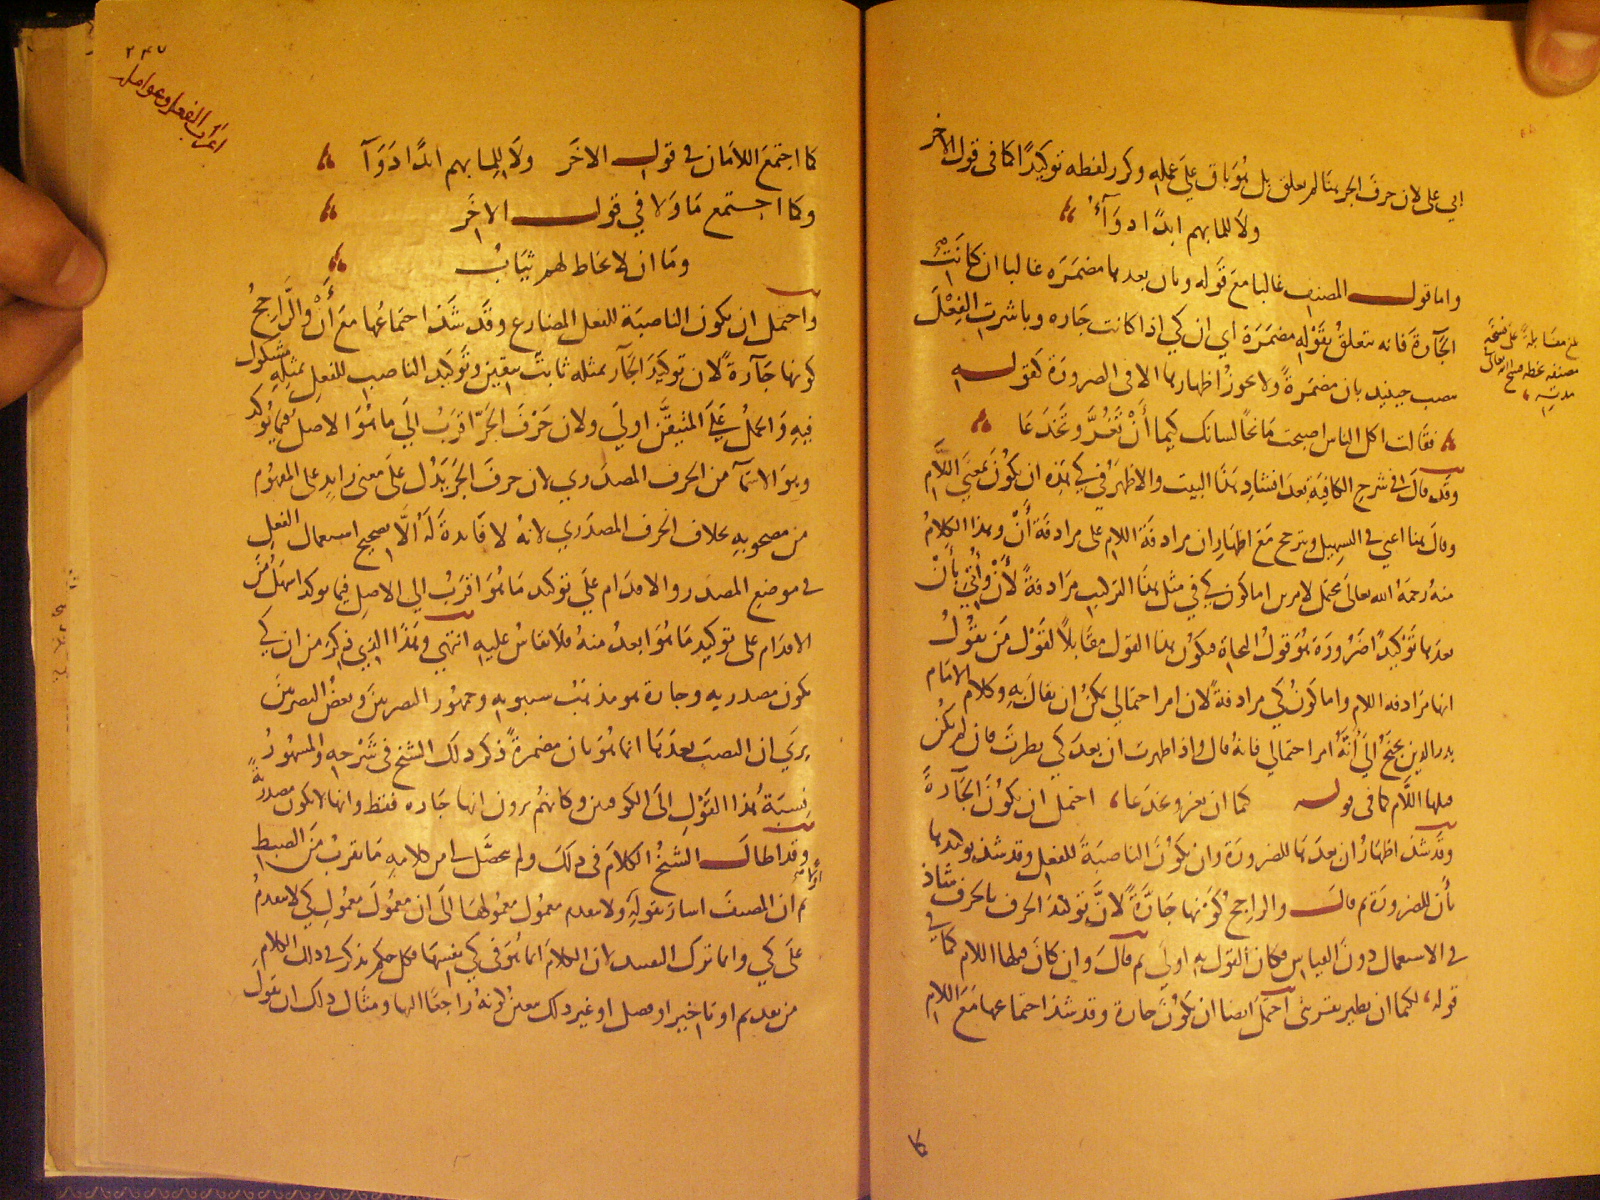 إلي على لان حرف الجر هنا لم يعلق بل هو باق على عمله وكرر لفظه توكيدًا كما في قول الاخر
ولا للما بهم ابدًا دوآءُ
واما قول المصنف غالبا مع قوله وبان بعدها مضمرة غالبا ان كانت
الجآرة فانه يتعلق بقوله مضمرة اي ان كي اذا كانت جاره وباشرت الفعل
نصب حينيد بان مضمرةً ولا يجوز اظهارها الا في الضرورة كقوله
فقالت اكل الناس اصبحت مانحًا لسانك كيما أنْ تغُرَّ وتخدعا
وقد قال في شرح الكافية بعد انشاد هذا البيت والاظهر في كي هذه ان يكون بمعنى اللام
وقال هنا اعني في التسهيل ويترجح مع اظهار ان مرادفة اللام على مرادفة أنْ وهذا الكلام
منه رحمه الله تعالى محتمل لامرين اما كون كي في مثل هذا التركيب مرادفةً لأنْ وأُتي بأنْ
بعدها توكيدًا ضرورة هو قول النحاة فيكون هذا القول مقابلًا لقول من يقول
انها مرادفه اللام واما كون كي مرادفةً لان امر احتمالي يمكن ان يقال به وكلام الامام
بدر الدين يجنح إلي أنه امر احتمالي فانه قال واذا اظهرت ان بعد كي نظرت فان لم يكن
قبلها اللام كما في قوله كما ان تغر وتخدعا، احتمل ان تكون الجآرةَ
وقد شذ اظهار ان بعدها للضرورة وان تكون الناصبة للفعل وقد شذ توكيدها
بأن للضرورة ثم قال والراجح كونها جارّةً لانَّ توكيد الحرف بالحرف شاذ
في الاستعمال دون القياس فكان القول به اولى ثم قال وان كان قبلها اللام كما في
قوله، لكيما ان تطير بقربتي احتمل ايضا ان تكون جارة وقد شذ اجتماعها مع اللام
عن مقابلة على نسخة
مصنفه بخطه
كما
٢٤٧
اعراب الفعل وعوامله
كما اجتمع اللامان في قول الاخر ولا للما بهم ابدًا دوآ
وكما اجتمع ما ولا في قول الاخر
وما ان لا تحاط لهم ثياب
واحتمل ان يكون الناصبة للفعل المضارع وقد شذ اجتماعها مع أنْ والراجح
كونها جآرة لان توكيد الجآر بمثله ثابت بيقين وتوكيد الناصب للفعل بمثله مشكوك
فيه والحمل على المتيقَّن اولى ولان حرف الجرّ اقرب الي ما هو الاصل فيما يؤكد
وهو الاسمآ من الحرف المصدري لان حرف الجر يدل على معنى زايد على المفهوم
من مصحوبه بخلاف الحرف المصدري لانه لا فايدة له إلّا تصحيح استعمال الفعل
في موضع المصدر والاقدام على توكيد ما هو اقرب الي الاصل فيما يوكد اسهل من
الاقدام على توكيد ما هو ابعد منه فلا يقاس عليه انتهى وهذا الذي ذكر من ان كي
تكون مصدريه وجارة هو مذهب سيبويه وجمهور البصريين وبعض البصريين
يرى ان النصب بعدها انما هو بان مضمرةً ذكر ذلك الشيخ في شرحه والمشهور
نسبة هذا القول الى الكوفيين وكانهم يرون انها جاره فقط وانها لا تكون مصدريةً
وقد اطال الشيخ الكلام في ذلك ولم يتحصّل لي من كلامه ما يقرب من الضبط
ثم ان المصنف اشار بقوله ولا يتقدم معمول معمولها الى ان معمول معمول كي لا يتقدم
على كي وانما ترك التقييد لان الكلام انما هو في كي نفسها فكل حكم يذكر في ذلك الكلام
من تقديم او تاخير او فصل او غير ذلك يتعين كونه راجعًا اليها ومثال ذلك ان تقول